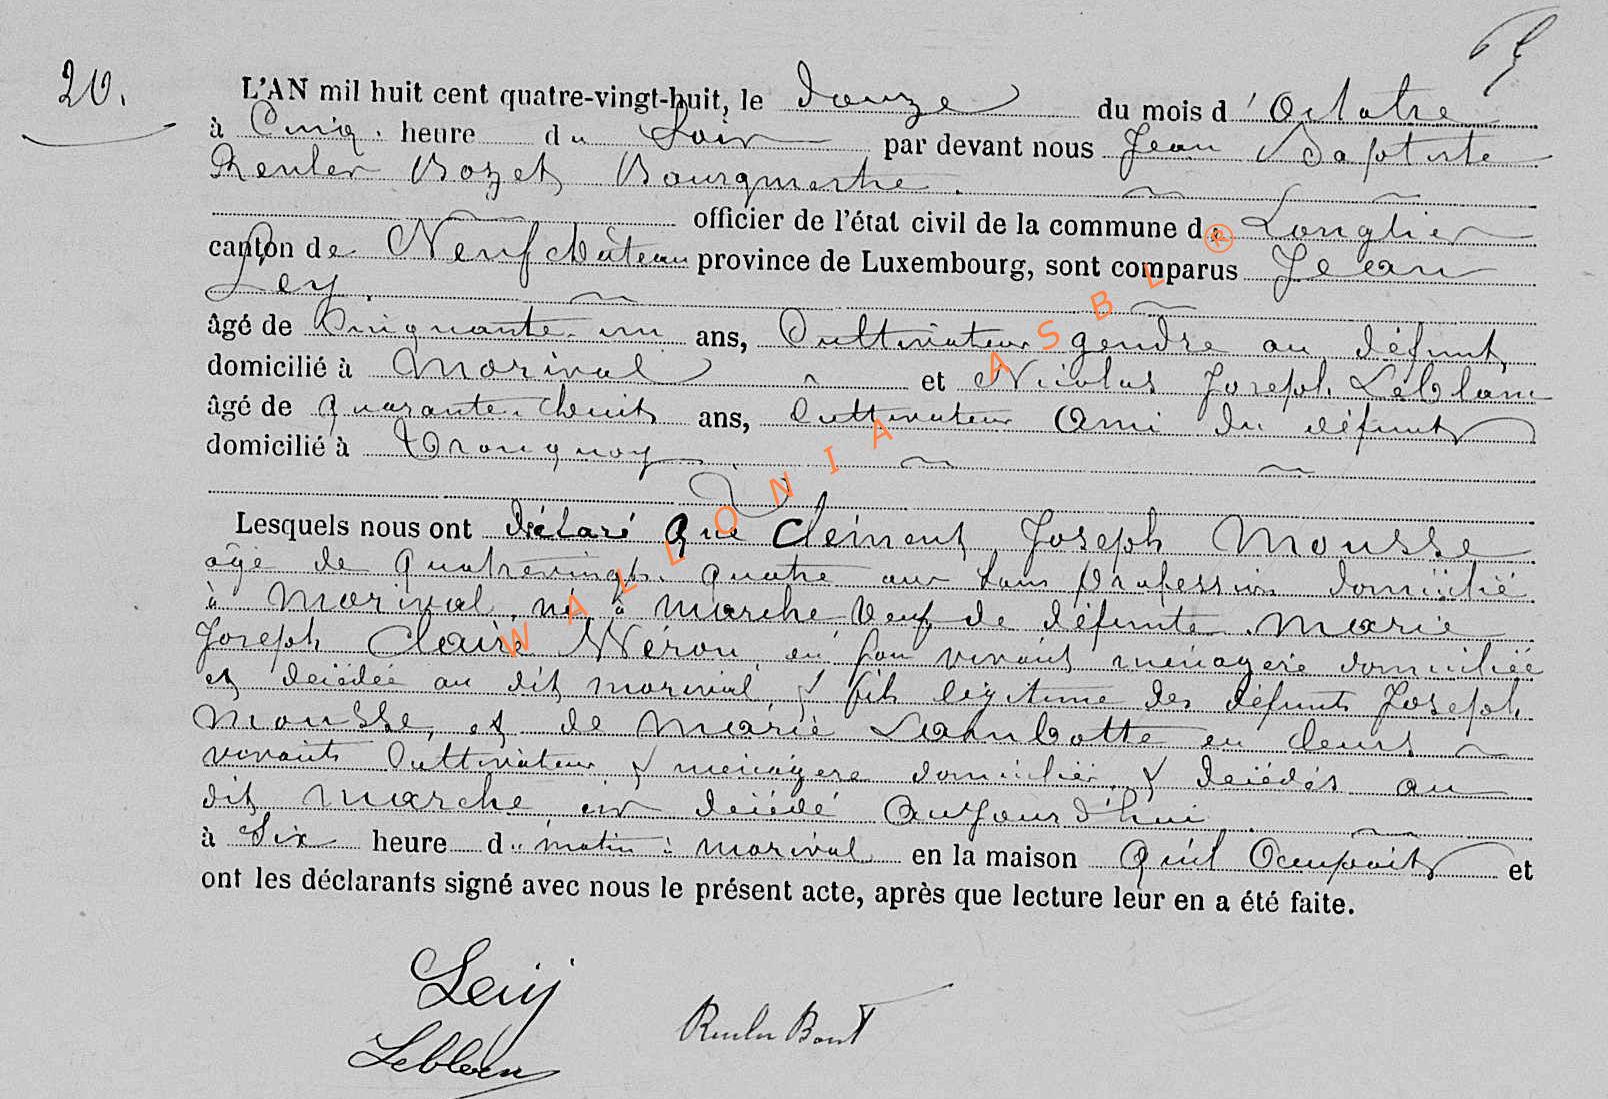 20.
L'AN mil huit cent quatre-vingt-huit, le douze du mois d'Octobre
à Cinq heure du Soir par devant nous Jean Baptiste
Reuler Bozet Bourgmestre.
officier de l'état civil de la commune de Longlier
canton de Neufchâteau province de Luxembourg, sont comparus Jean
Ley.
âgé de Cinquante-un ans, Cultivateur gendre au défunt,
domicilié à Morival et Nicolas Joseph Leblanc
âgé de quarante-huit ans, Cultivateur Ami du défunt
domicilié à Tronquoy
Lesquels nous ont déclaré que Clément Joseph Mousse
âgé de quatrevingt-quatre ans sans profession domicilié
à Morival, né à Marche Veuf de défunte Marie
Joseph Claire Néron en son vivant ménagère domiciliée
et décédée au dit morival & fils légitime des défunts Joseph
Mousse, et de Marie Lambotte en leurs
vivants Cultivateur & ménagère domiciliés & décédés au
dit Marche, est décédé Aujourd'hui
à Six heure du matin à morival en la maison qu'il Occupait et
ont les déclarants signé avec nous le présent acte, après que lecture leur en a été faite.
Leblanc
WALLONIA ASBL ®